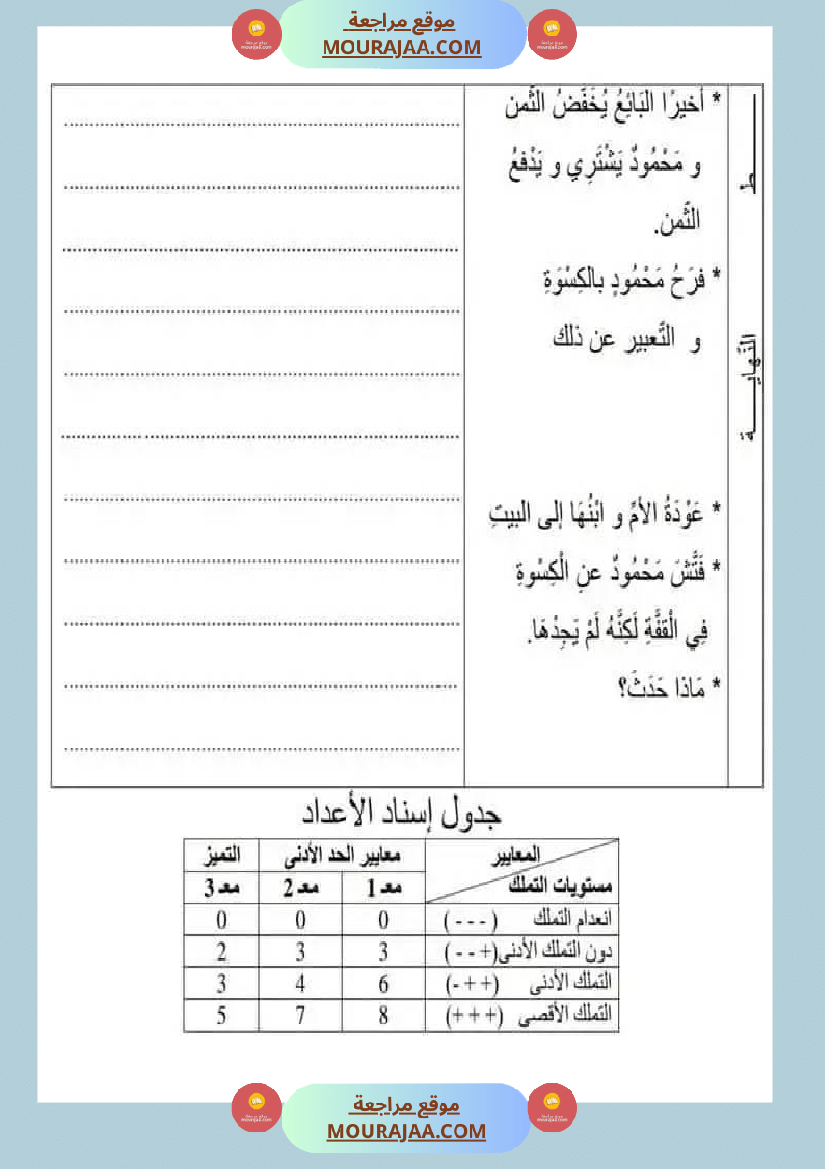 موقع مراجعة
MOURAJAA.COM
* أخيرًا الْبَائِعُ يُخَفِّضُ الثَّمن
و مَحْمُودٌ يَشْتَرِي و يَدْفعُ
الثَّمن.
* فرَحُ مَحْمُودٍ بالكِسْوَةِ
و التَّعبير عن ذلك
النّهايـــــة
* عَوْدَةُ الأمِّ و ابْنُهَا إلى الْبيتِ
* فَتَّشَ مَحْمُودٌ عنِ الْكِسْوةِ
فِي الْقفَّةِ لَكِنَّهُ لَمْ يَجِدْهَا.
* مَاذا حَدَثَ؟
جدول إسناد الأعداد
المعايير معايير الحد الأدنى التميز
مستويات التملك معـ 1 معـ 2 معـ 3
انعدام التملك (- - -) 0 0 0
دون التملك الأدنى (+ - -) 3 3 2
التملك الأدنى (+ + -) 6 4 3
التملك الأقصى (+ + +) 8 7 5
موقع مراجعة
MOURAJAA.COM